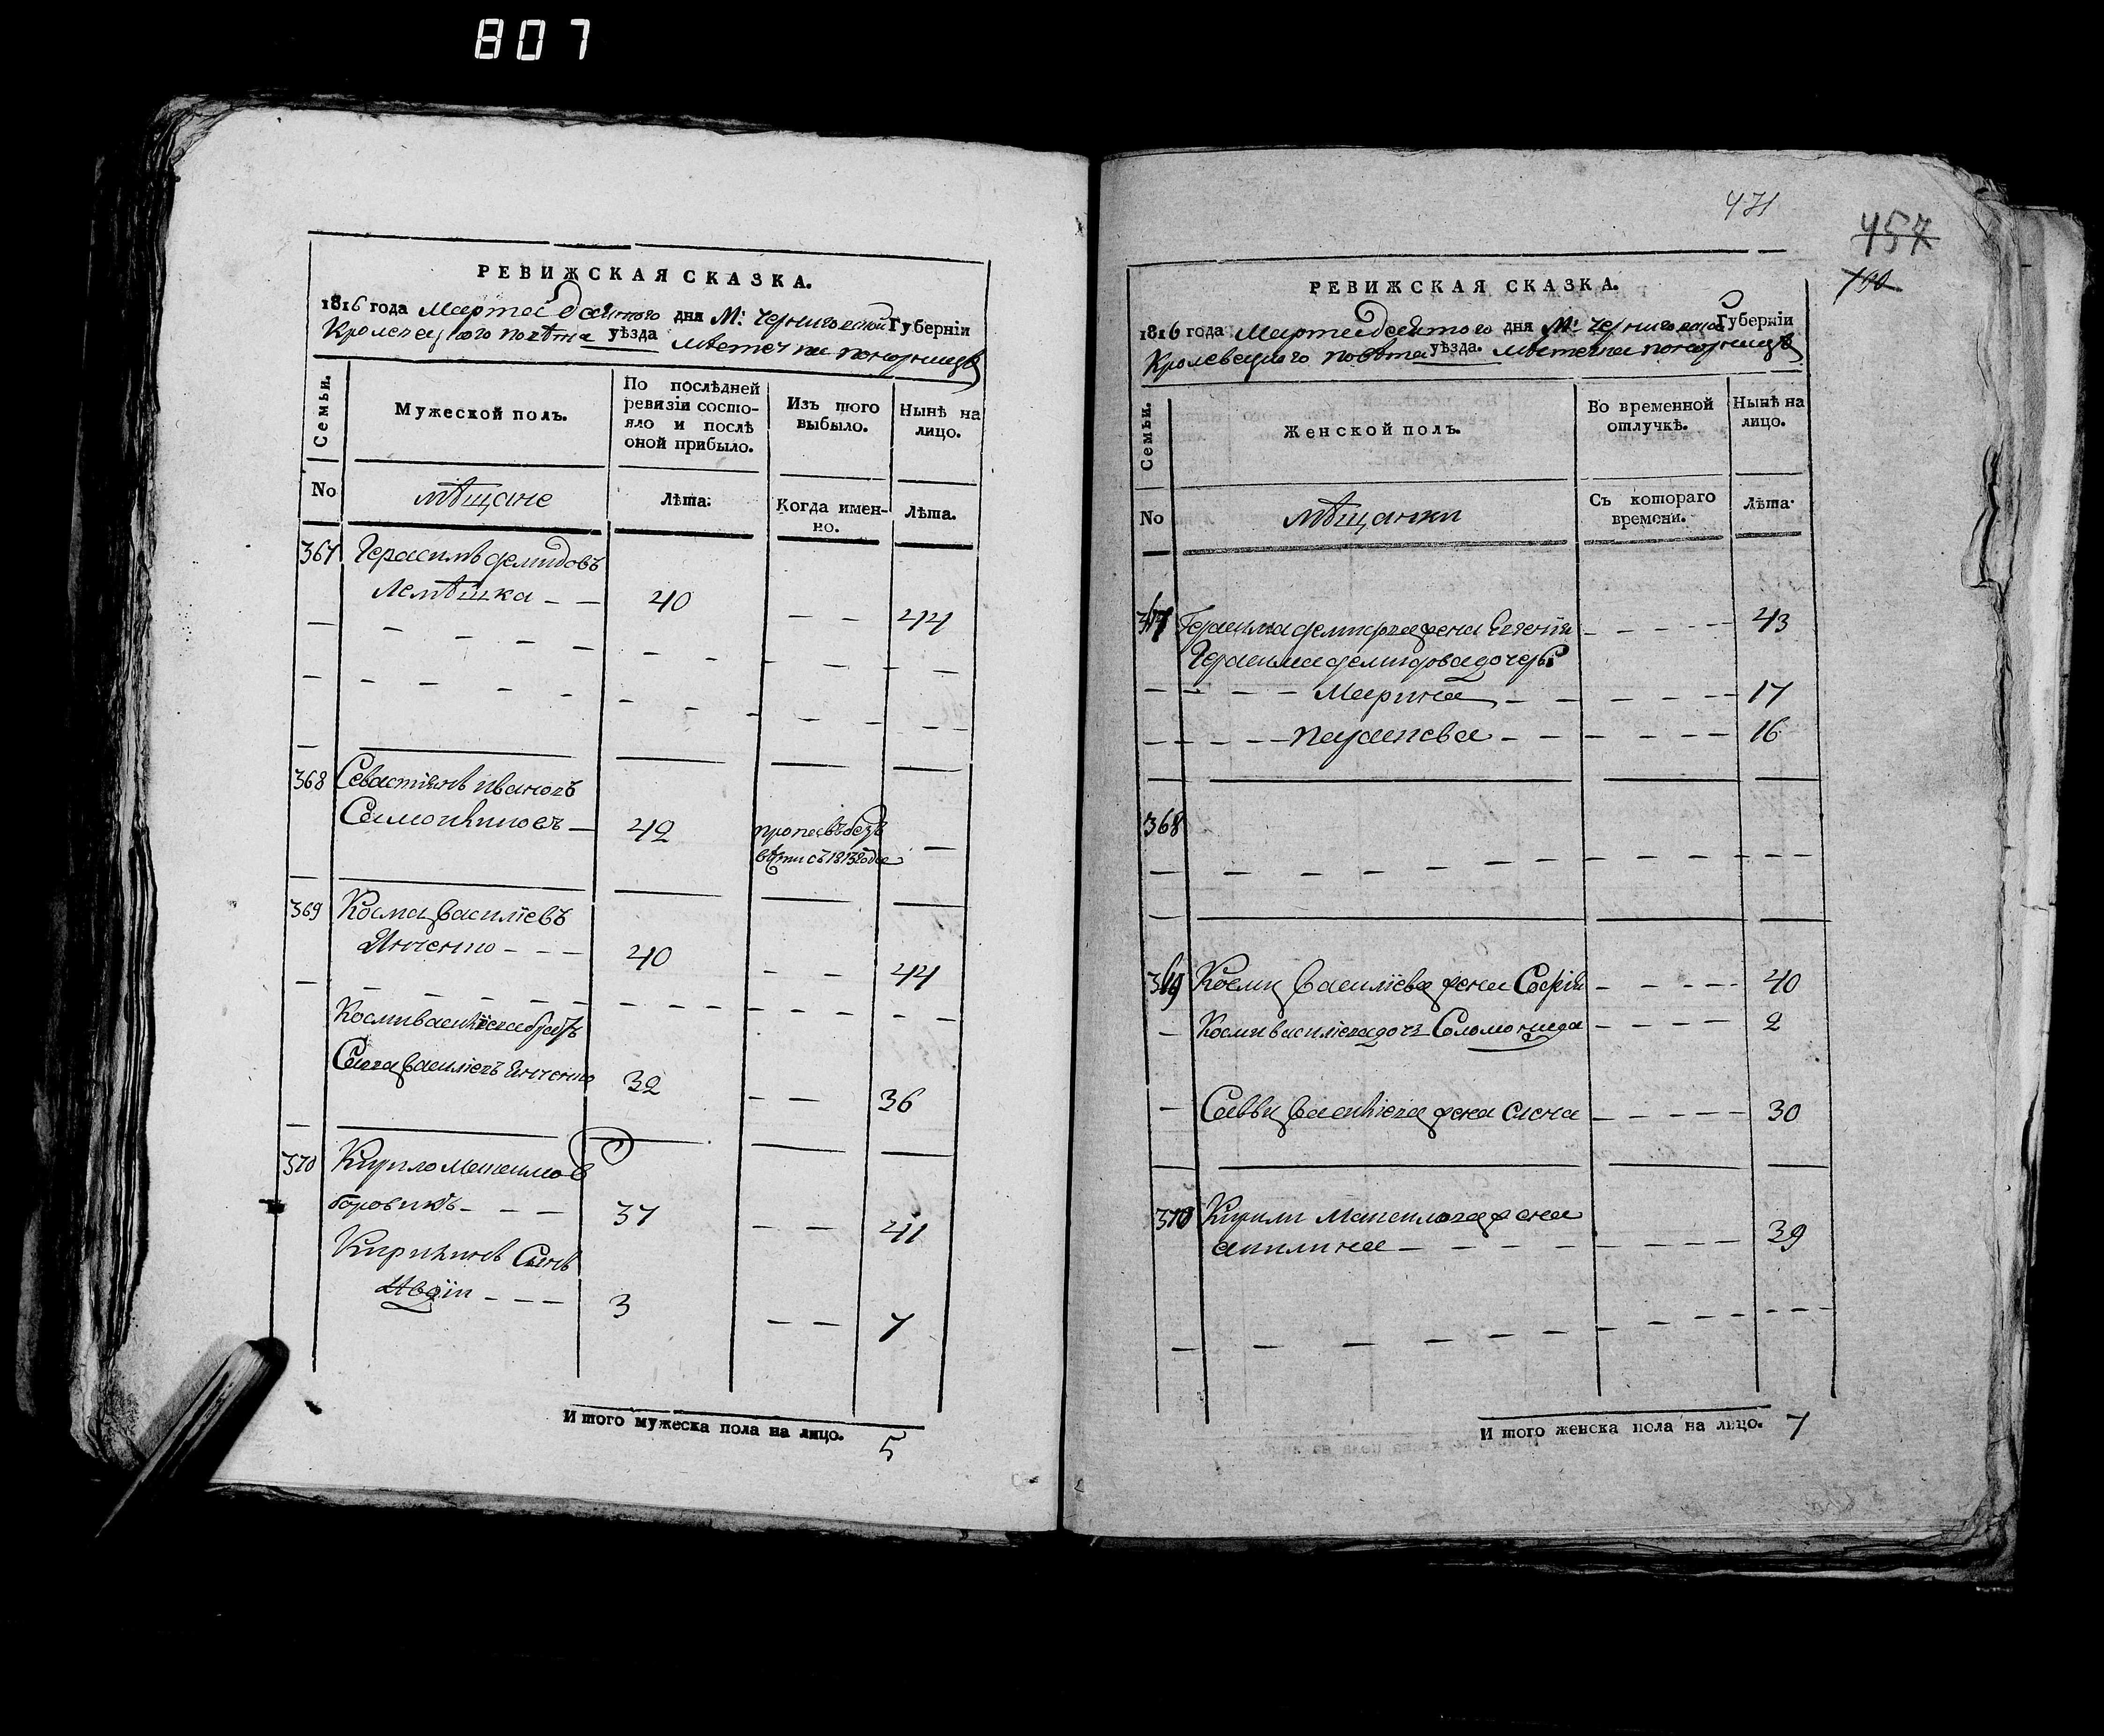 807
РЕВИЖСКАЯ СКАЗКА.
1816 года Марта десятого дня М: Черниговской Губерніи
Кролевецкого повѣта уѣзда мѣстечка Понорницѣ
Семьи.
Мужеской полъ.
По послѣдней ревизіи состояло и послѣ оной прибыло.
Изъ того выбыло.
Нынѣ на лицо.
No
мѣщане
Лѣта.
Когда именно.
Лѣта.
367 Герасимъ демидовъ
Лемѣшка 40 44
368 Севастіянъ Ивановъ
42 пропавъ безъ
вѣсти съ 1813 года
369 Косма Василіевъ
Янченко 40 44
Космы Василіева братъ
Савва Василіевъ Янченко 32 36
370 Кирило Максимовъ
боровикъ 37 41
Кириловъ Сынъ
3 7
И того мужеска пола на лицо. 5
471
457
РЕВИЖСКАЯ СКАЗКА.
1816 года Марта десятого дня М: Черниговской Губерніи
Кролевецкого повѣта уѣзда. мѣстечка Понорницѣ
Семьи.
Женской полъ.
Во временной отлучкѣ.
Нынѣ на лицо.
No
мѣщанки
Съ котораго времени.
Лѣта
367 Герасима демидова жена Евгенія 43
Герасима демидова дочерѣ
Марина 17
параскева 16
368
369 Космы Василіева жена Софія 40
Космы василіева доч Соломонида 2
Саввы Василіева жена 30
370 Кирилы Максимова жена
акилина 39
И того женска пола на лицо. 7